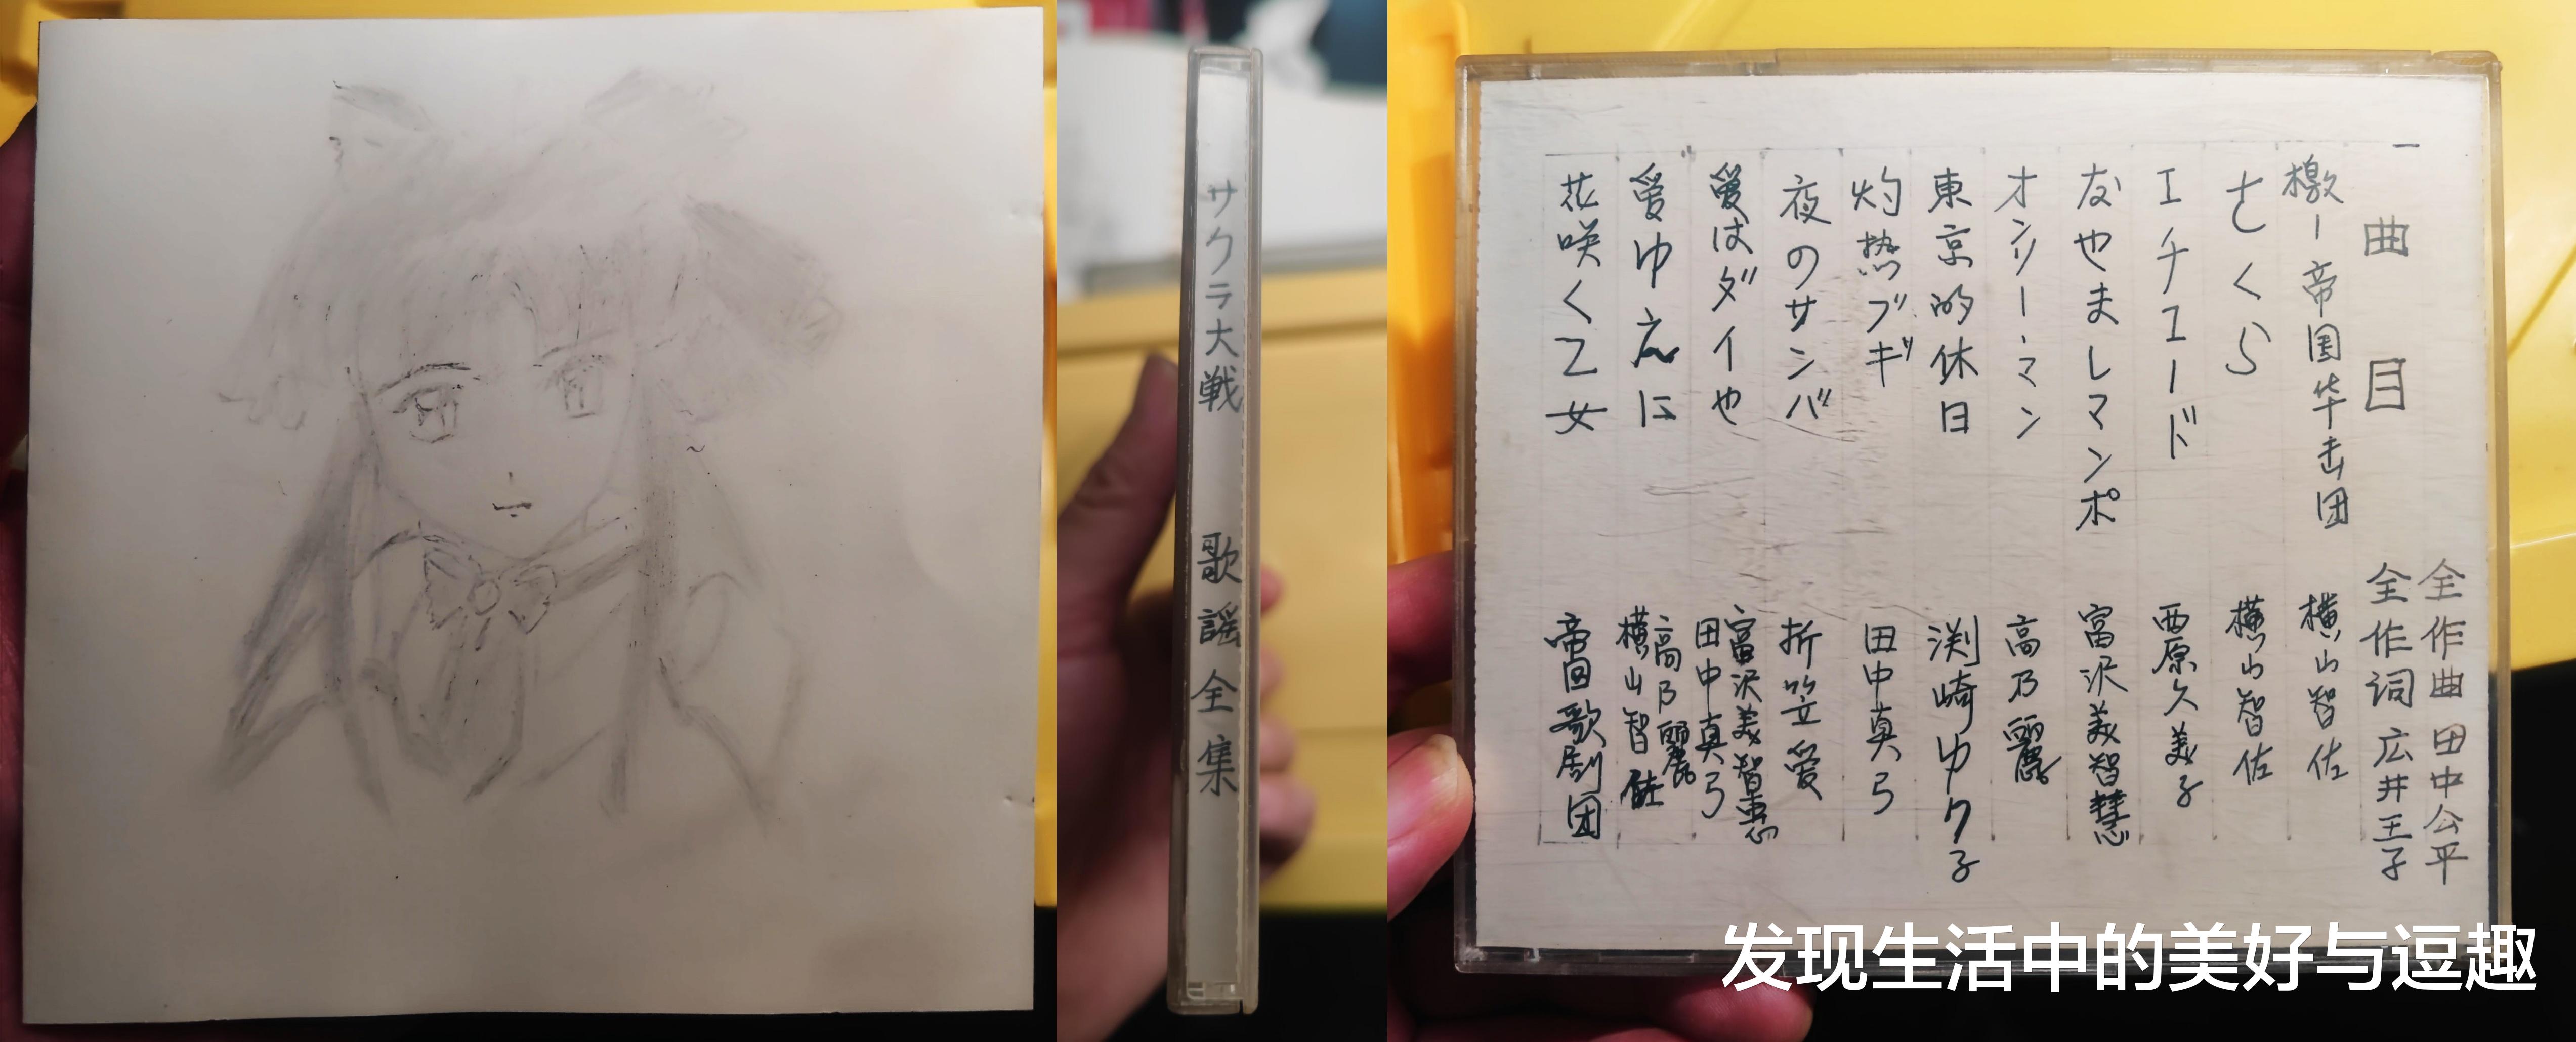 サクラ大戦 歌謡全集
一
曲目
全作曲 田中公平
全作词 広井王子
檄ー帝国华击团 横山智佐
さくら 横山智佐
エチュード 西原久美子
なやましマンボ 富沢美智慧
オンリー・マン 高乃麗
東京的休日 渕崎ゆり子
灼热ブギ 田中真弓
夜のサンバ 折笠愛
愛はダイヤ 富沢美智恵 田中真弓
愛ゆえに 高乃麗 横山智佐
花咲く乙女 帝国歌劇团
发现生活中的美好与逗趣